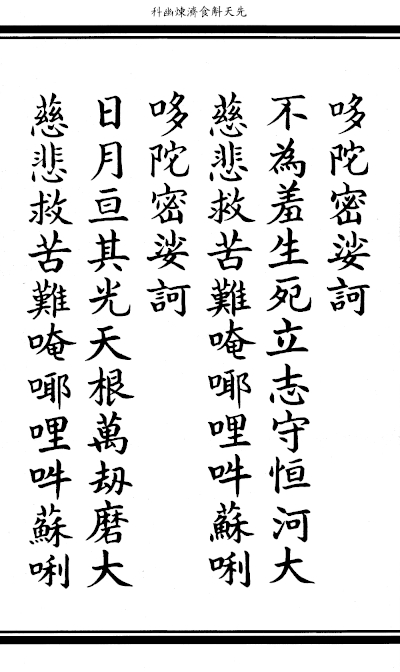 先天斛食濟煉幽科
哆陀密娑訶
不為羞生死立志守恒河大
慈悲救苦難唵㖿哩吽蘇唎
哆陀密娑訶
日月亘其光天根萬劫磨大
慈悲救苦難唵㖿哩吽蘇唎